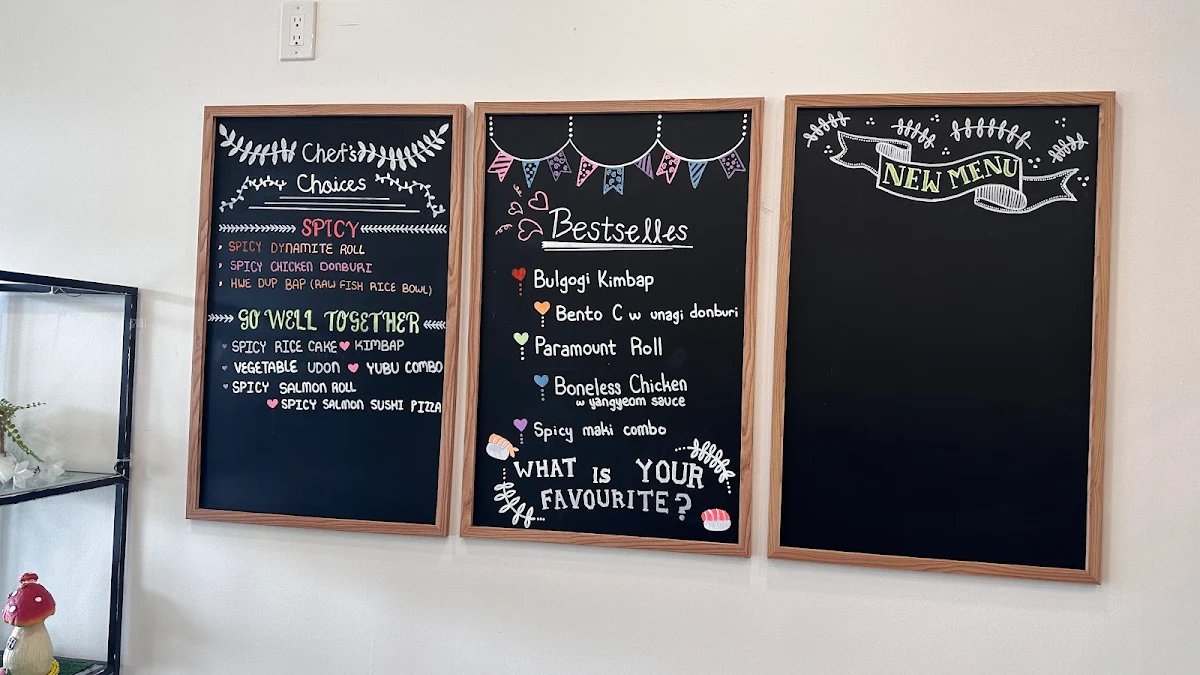 Chef's
Choices
SPICY
SPICY DYNAMITE ROLL
SPICY CHICKEN DONBURI
HWE DUP BAP (RAW FISH RICE BOWL)
GO WELL TOGETHER
SPICY RICE CAKE ♥ KIMBAP
VEGETABLE UDON ♥ YUBU COMBO
SPICY SALMON ROLL
♥ SPICY SALMON SUSHI PIZZA
Bestselles
Bulgogi Kimbap
Bento C w unagi donburi
Paramount Roll
Boneless Chicken
w yangyeom sauce
Spicy maki combo
WHAT IS YOUR
FAVOURITE?
NEW MENU